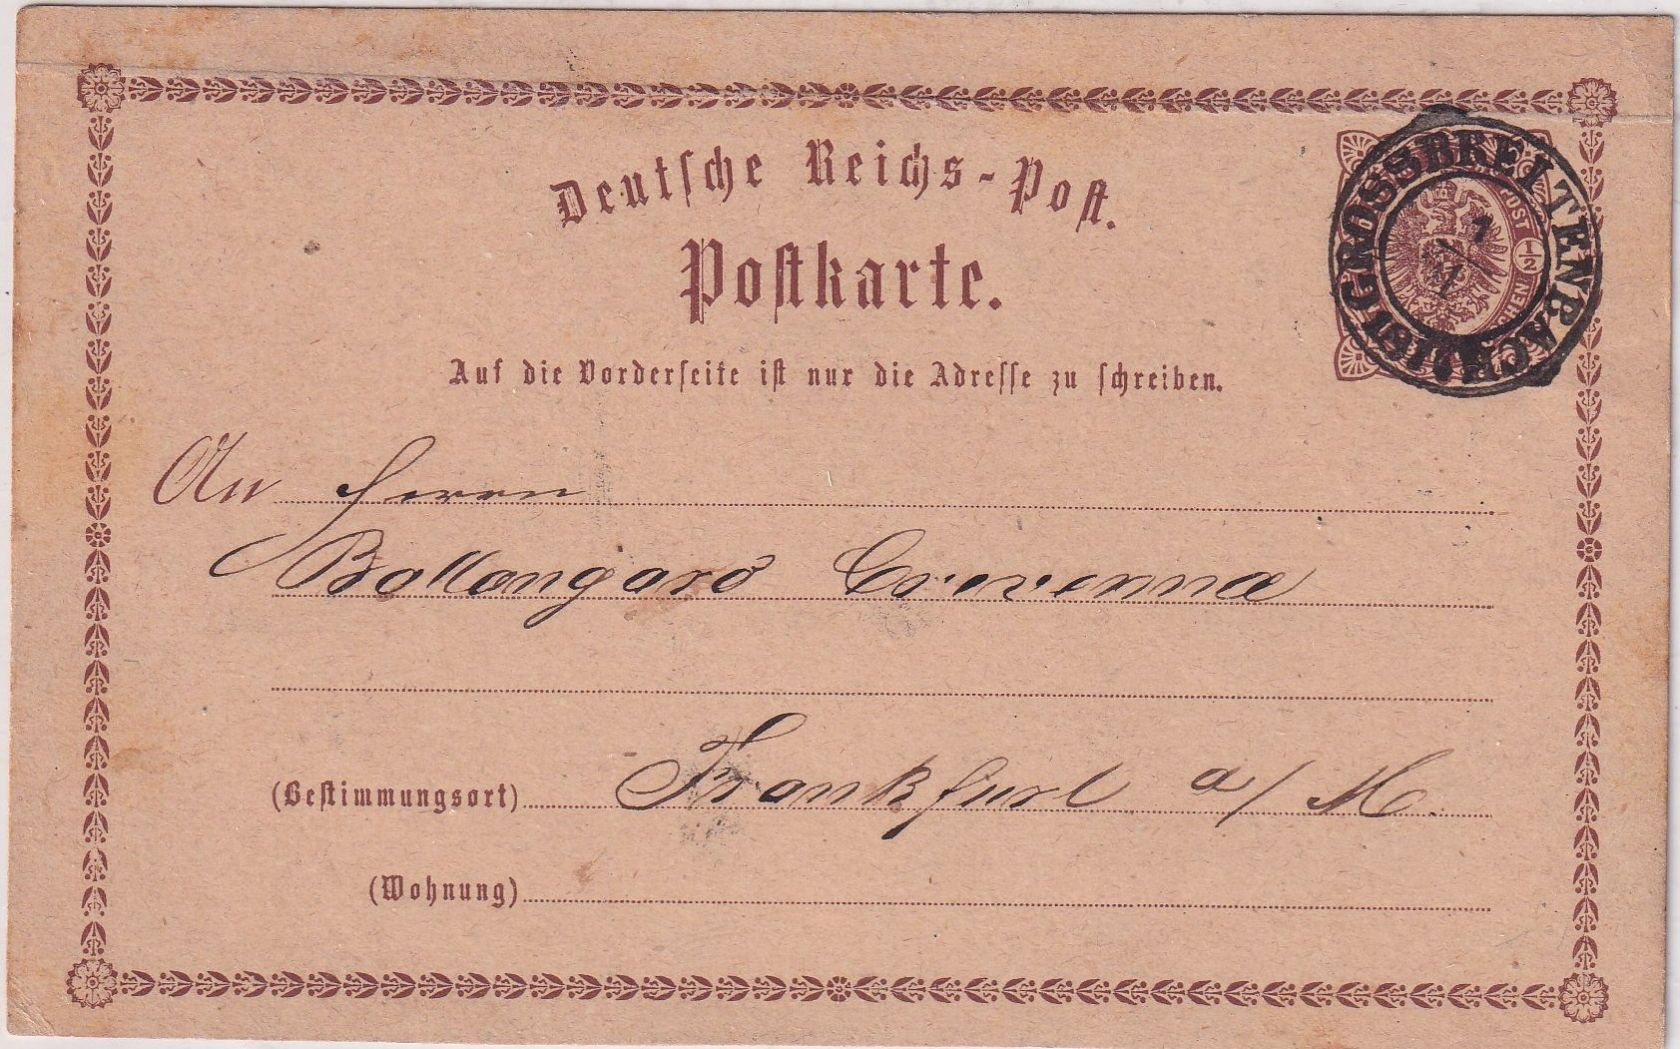 Deutsche Reichs-Post.
Postkarte.
GROSSBREITENBACH
1/2
Auf die Vorderseite ist nur die Adresse zu schreiben.
An Herrn
Bollongaro Crevenna
(Bestimmungsort) Frankfurt a/M.
(Wohnung)